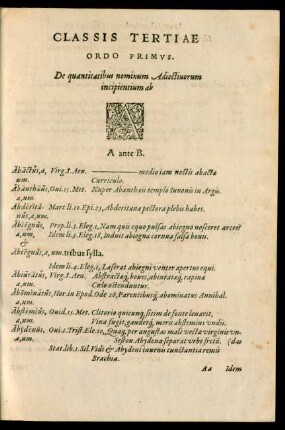 CLASSIS TERTIAE
ORDO PRIMVS.
De quantitatibus nominum Adiectiuorum
incipientium ab
A
A ante B.
Abactus, a, Virg. 3. Aen. medio iam noctis abacta
um. Curriculo.
Abanthæus, Oui. 15. Met. Nuper Abantheis templo Iunonis in Argis
a, um
Abderita- Mart. li. 10. Epi. 25, Abderitanæ pectora plebis habet.
nus, a, um.
Abiegnus, Prop. li. 3. Eleg. 1, Nam quis equo pulsas abiegno nosceret arces?
a, um Idem li. 3. Eleg. 18, Induit abiegna cornua falsa bouis.
&
Abiegnus, a, um. trisyllaba.
Idem li. 4. Eleg. 1, Laserat abiegni venter apertus equi.
Abiuratus, Virg. 8. Aen. Abstractæq́; boues, abiuratæq́; rapinæ
a, um. Cælo ostenduntur.
Abominatus, Hor. in Epod. Ode 16, Parentibusq́; abominatus Annibal.
a, um.
Abstemius, Ouid. 15. Met. Clitorio quicunq; sitim de fonte leuarit,
a, um. Vina fugit, gaudetq́; meris abstemius vndis.
Abydenus, Oui. 1. Trist. Ele. 10, Quaq; per angustas male vectæ virginis vn-
a, um. Seston Abydena separat vrbe fretū. (das
Stat. lib. 1. Sil. Vidi & Abydeni iuuenis cunctantia remis
Brachia.
Aa Idem